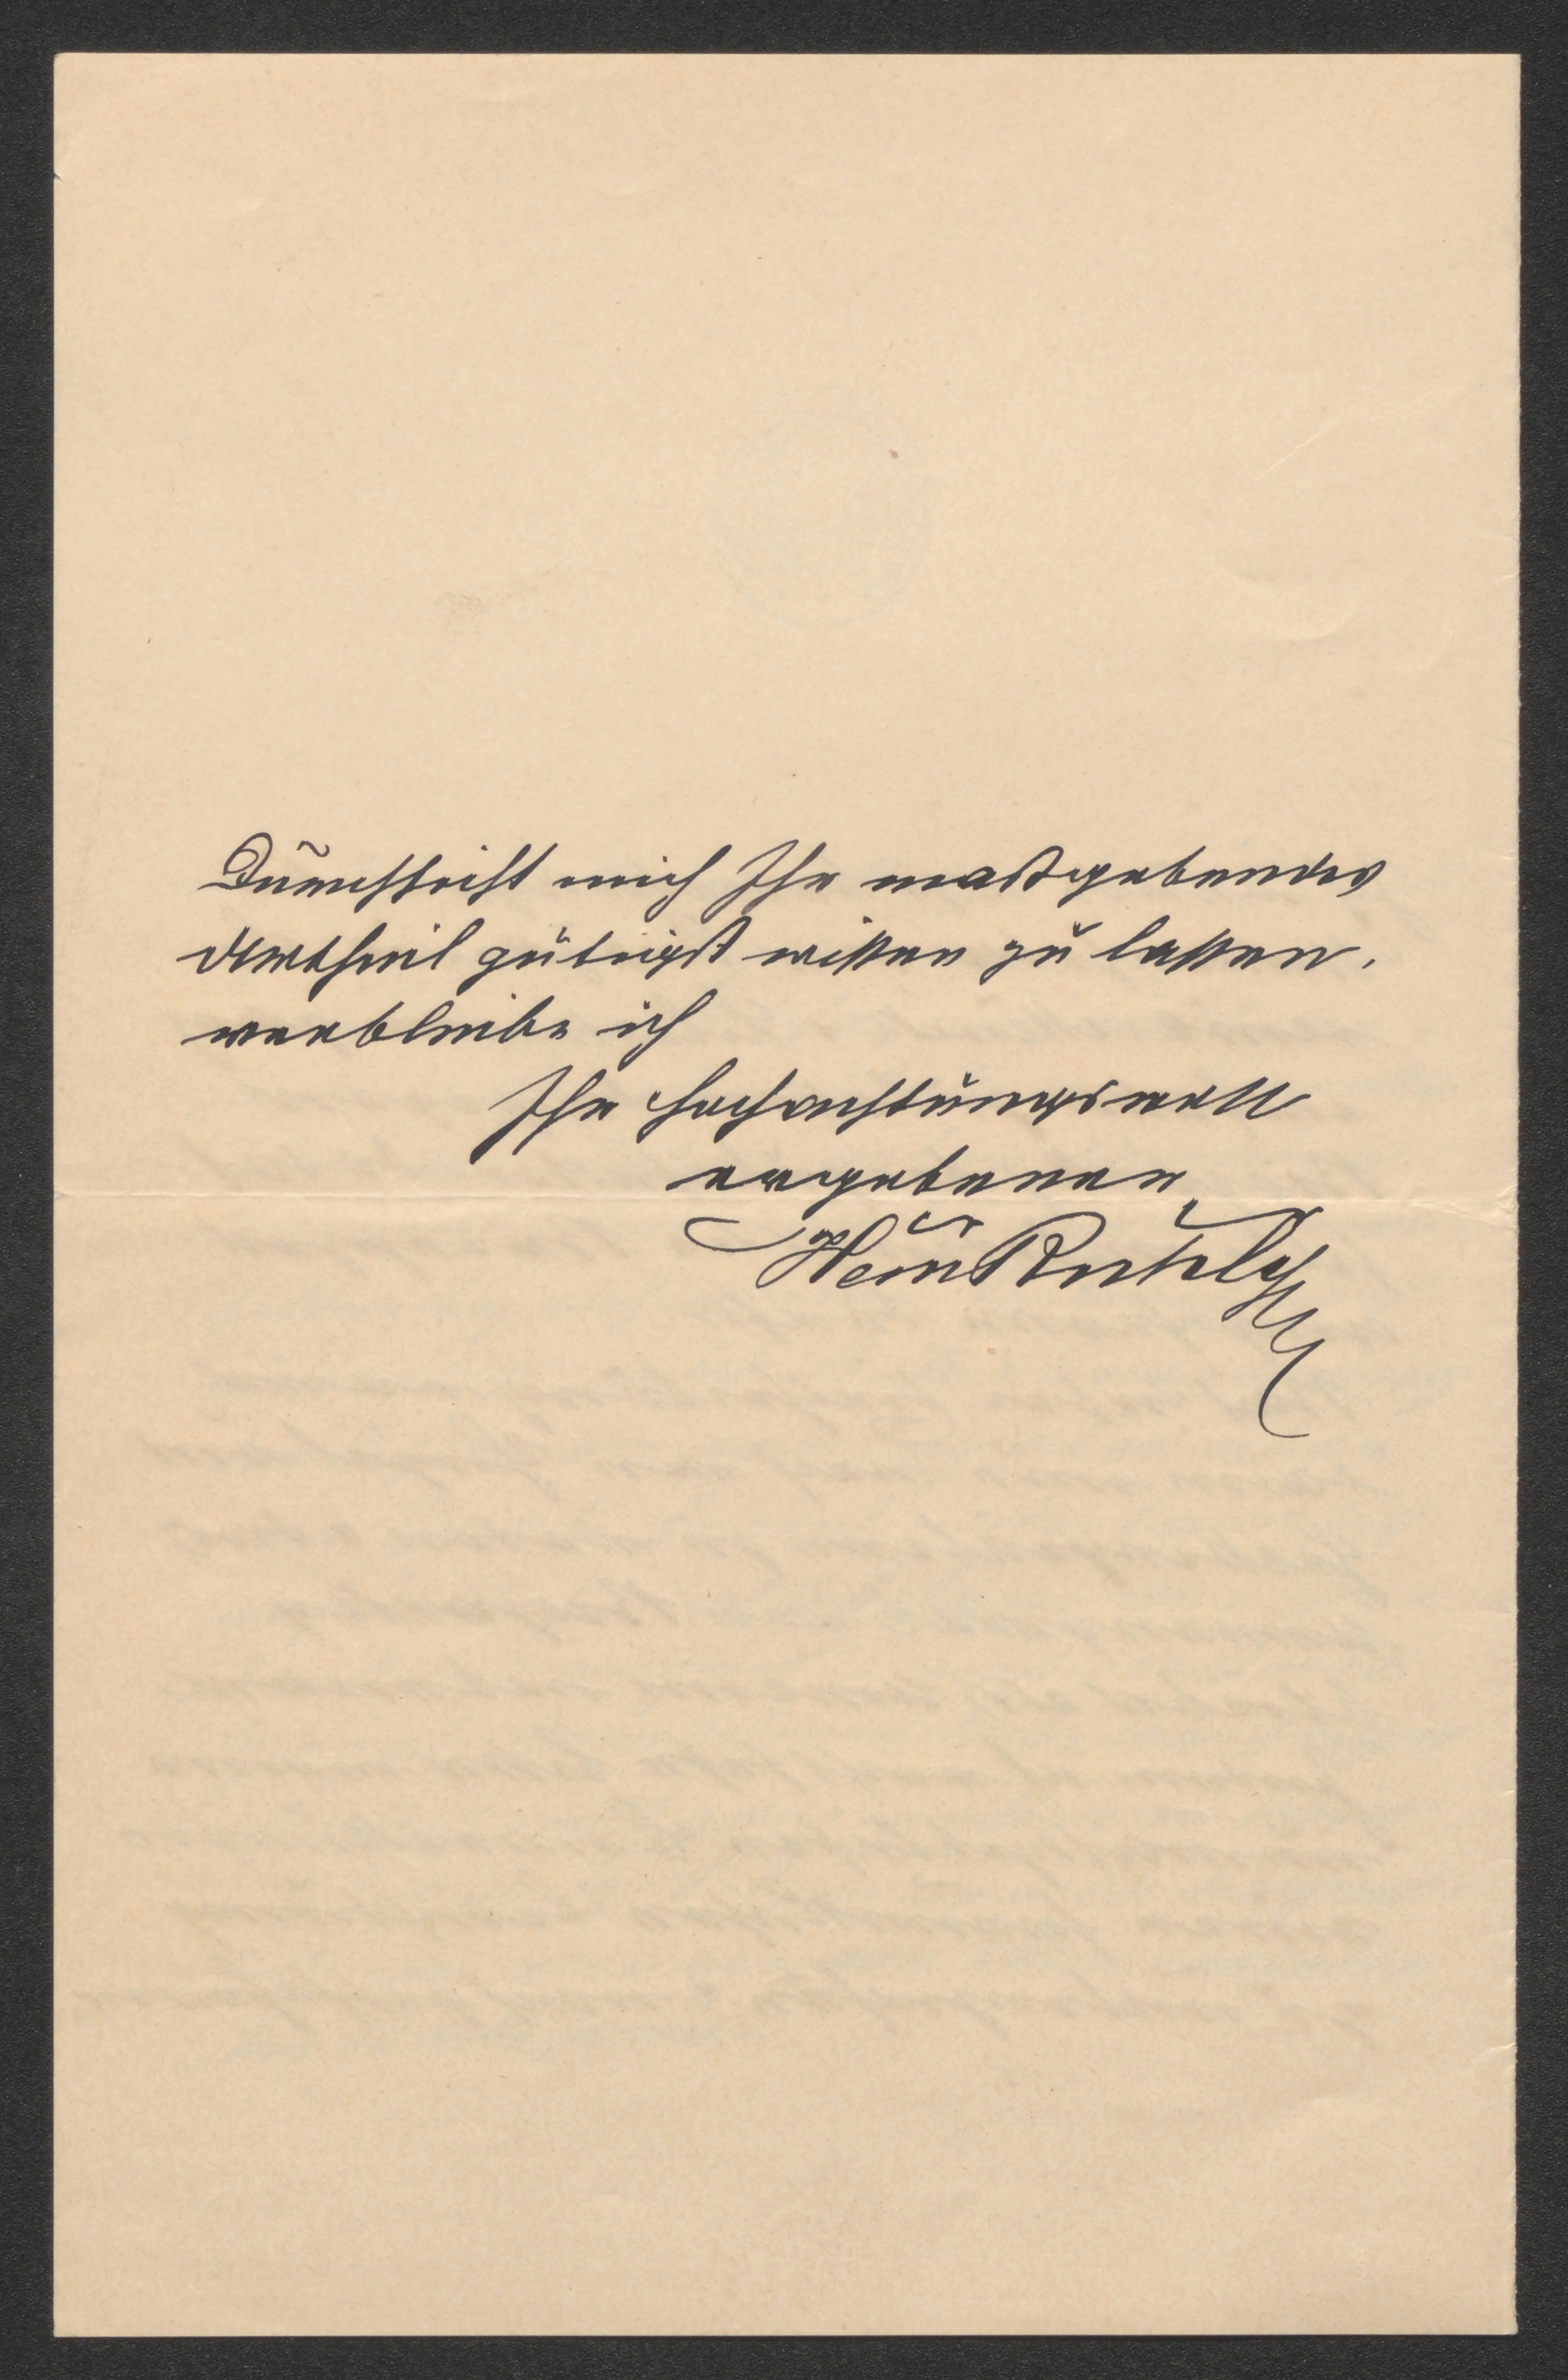 Durchsicht mich Ihr maßgebendes
Urtheil gütigst wissen zu lassen,
verbleibe ich
Ihr hochachtungsvoll
ergebener
Hein